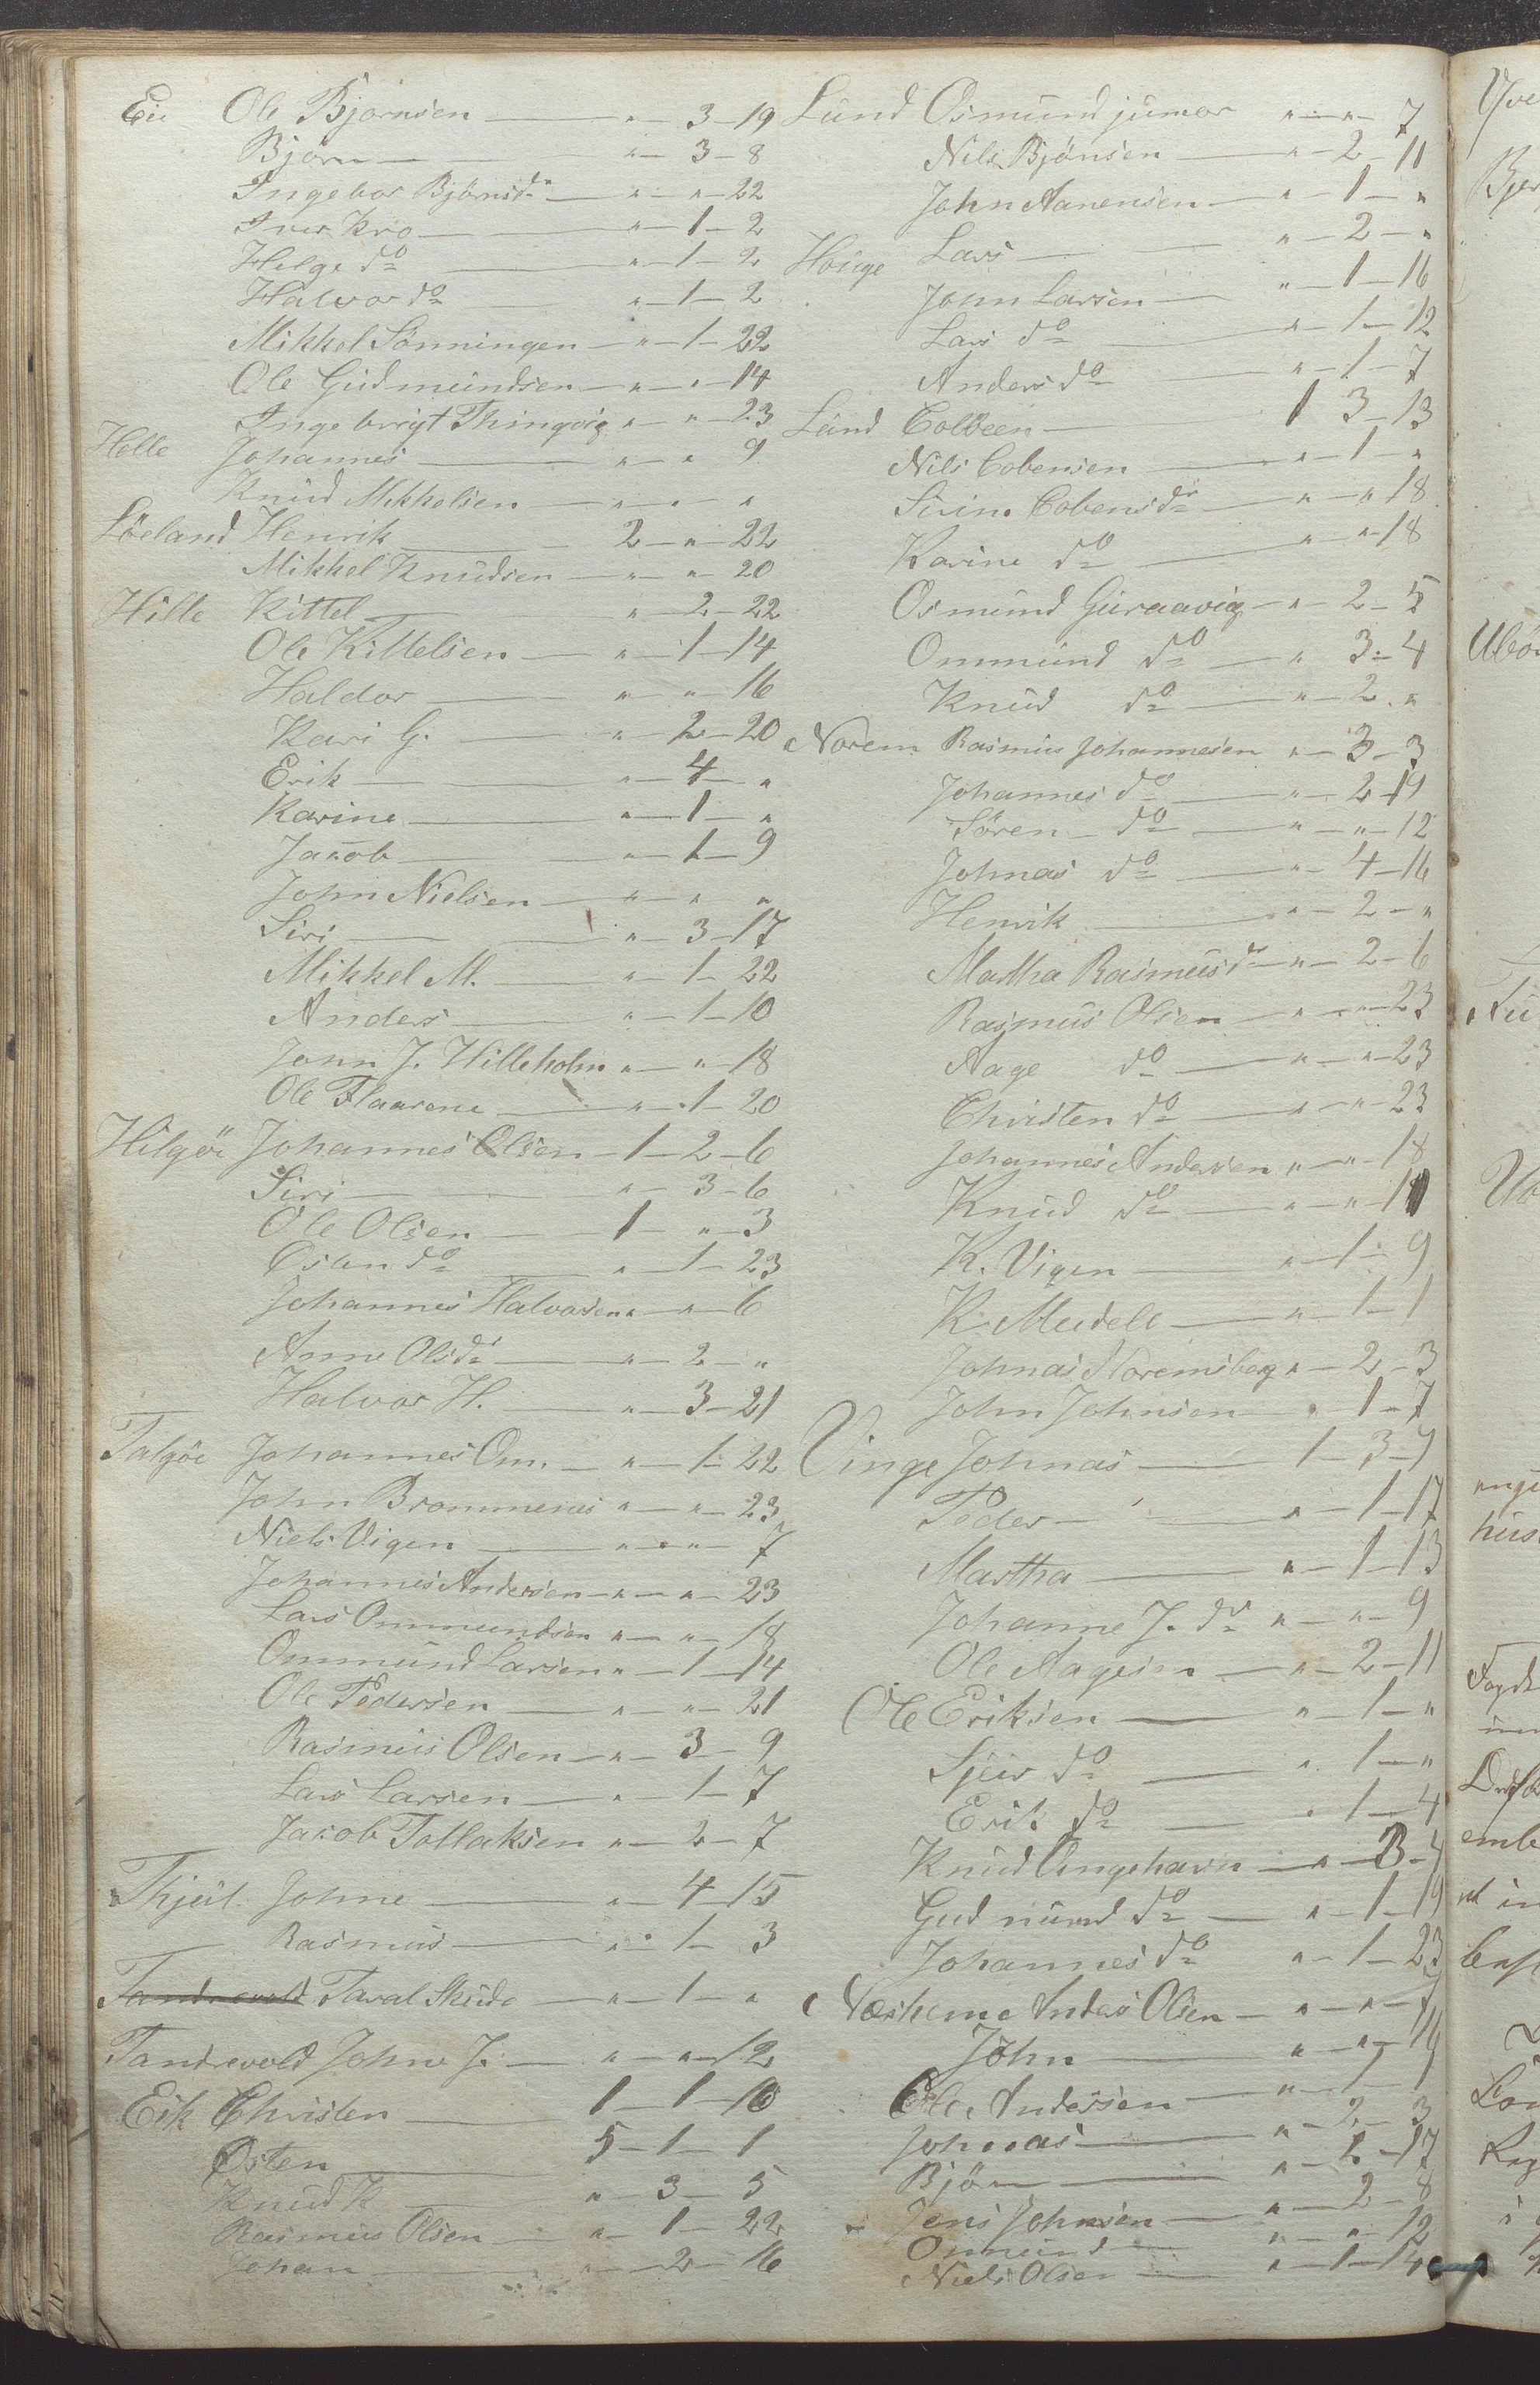 Eie Ole Bjornsen — " — 3 — 19
Bjørn — " — 3 — 8
Ingebor Bjørnsdr — " — " — 22
Iver Kro — " — 1 — 2
Helge do — " — 1 — 2
Halvor do — " — 1 — 2
Mikkel Sönningen — " — 1 — 22
Ole Gudmundsen — " — " — 14
Ingebrigt Thingvig " — " — 23
Helle Johannes — " — " 9
Knud Mikkelsen — " — " — "
Söeland Henrik — 2 — " — 22
Mikkel Knudsen — " — " — 20
Hille Kittel — " — 2 — 22
Ole Kittelsen — " — 1 — 14
Haldor — " — " — 16
Kari G. — " — 2 — 20
Erik — " — 4 — "
Karine — " — 1 — "
Jacob — " — 1 — 9
John Nielsen — " — " — "
Siri — " — 3 — 17
Mikkel M. — " — 1 — 22
Anders — " — 1 — 10
John J. Hilleholm " — " — 18
Ole Flaarene — " — 1 — 20
Hilgöe Johannes Olsen — 1 — 2 — 6
Siri — " — 3 — 6
Ole Olsen — 1 — " — 3
Osten do — " — 1 — 23
Johannes Halvorsen " — " — 6
Anne Olsdr — " — 2 — "
Halvor H. — " — 3 — 21
Talgöe Johannes Om. — " — 1 — 22
John Brommenes " — " — 23
Niels Vigen — " — " — 7
Johannes Andersen — " — " — 23
Lars Ommundsen " — " — 18
Ommund Larsen " — 1 — 14
Ole Pedersen — " — " — 21
Rasmus Olsen — " — 3 — 9
Lars Larsen — " — 1 — 7
Jacob Tollaksen " — 2 — 7
Thjeül. Johne — " — 4 — 15
Rasmus — " — 1 — 3
Tandrevold Taral Skude — " — 1 — "
Tandrevold John J. — " — " — 12
Eik Christen — 1 — 1 — 16
Østen — 5 — 1 — 1
Knud K — " — 3 — 5
Rasmus Olsen — " — 1 — 22
Johan — " — 2 — 16
Lund Osmund junior " — " — 7
Nils Bjönsen — " — 2 — 11
John Aanensen — " — 1 — "
Houge Lars — " — 2 — "
John Larsen — " — 1 — 16
Lars do — " — 1 — 12
Anders do — " — 1 — 7
Lund Colbeen — 1 3 — 13
Nils Cobensen — " — 1 — "
Sirin. Cobensdr — " — " 18
Karine do — " — " — 18
Osmund Guraavig — " — 2 — 5
Ommund do — " 3 — 4
Knud do — " — 2 . "
Norem Rasmus Johannesen " — 3 — 3
Johannes do — " — 2 — 19
Sören — do — " — " — 12
Johnas do — " — 4 — 16
Henrik — " — 2 — "
Martha Rasmusdr — " — 2 — 6
Rasmus Olsen — " — " — 23
Aage do — " — " — 23
Christen do — " — " — 23
Johannes Andersen " — " — 18
Knud do — " — " — 11
K. Vigen — " — 1 — 9
K. Meidell — " — 1 — 1
Johnas Noremsberg " — 2 — 3
John Johnsen — " — 1 — 7
Vinge Johnas — 1 — 3 — 9
Peder — " — 1 — 17
Martha — " — 1 — 13
Johanne J. dr " — " — 9
Ole Aagesen — " — 2 — 11
Ole Eriksen — " — 1 — "
Sjur do — " . 1 — "
Erik do — " 1 — 4
Knud Ongehavn — " — 3 — 4
Gudmund do — " — 1 — 19
Johannes do " — 1 — 23
Næsheim Anders Olsen — " — " — 7
John — " — " — 16
Ole Andersen — " — 1 — 1
Johnas — " — 2 — 3
Björn — " — 1 — 17
Jens Johnsen — " — 2 — 8
Ommund — " — " — 12
Niels Olsen — " — 1 — 14